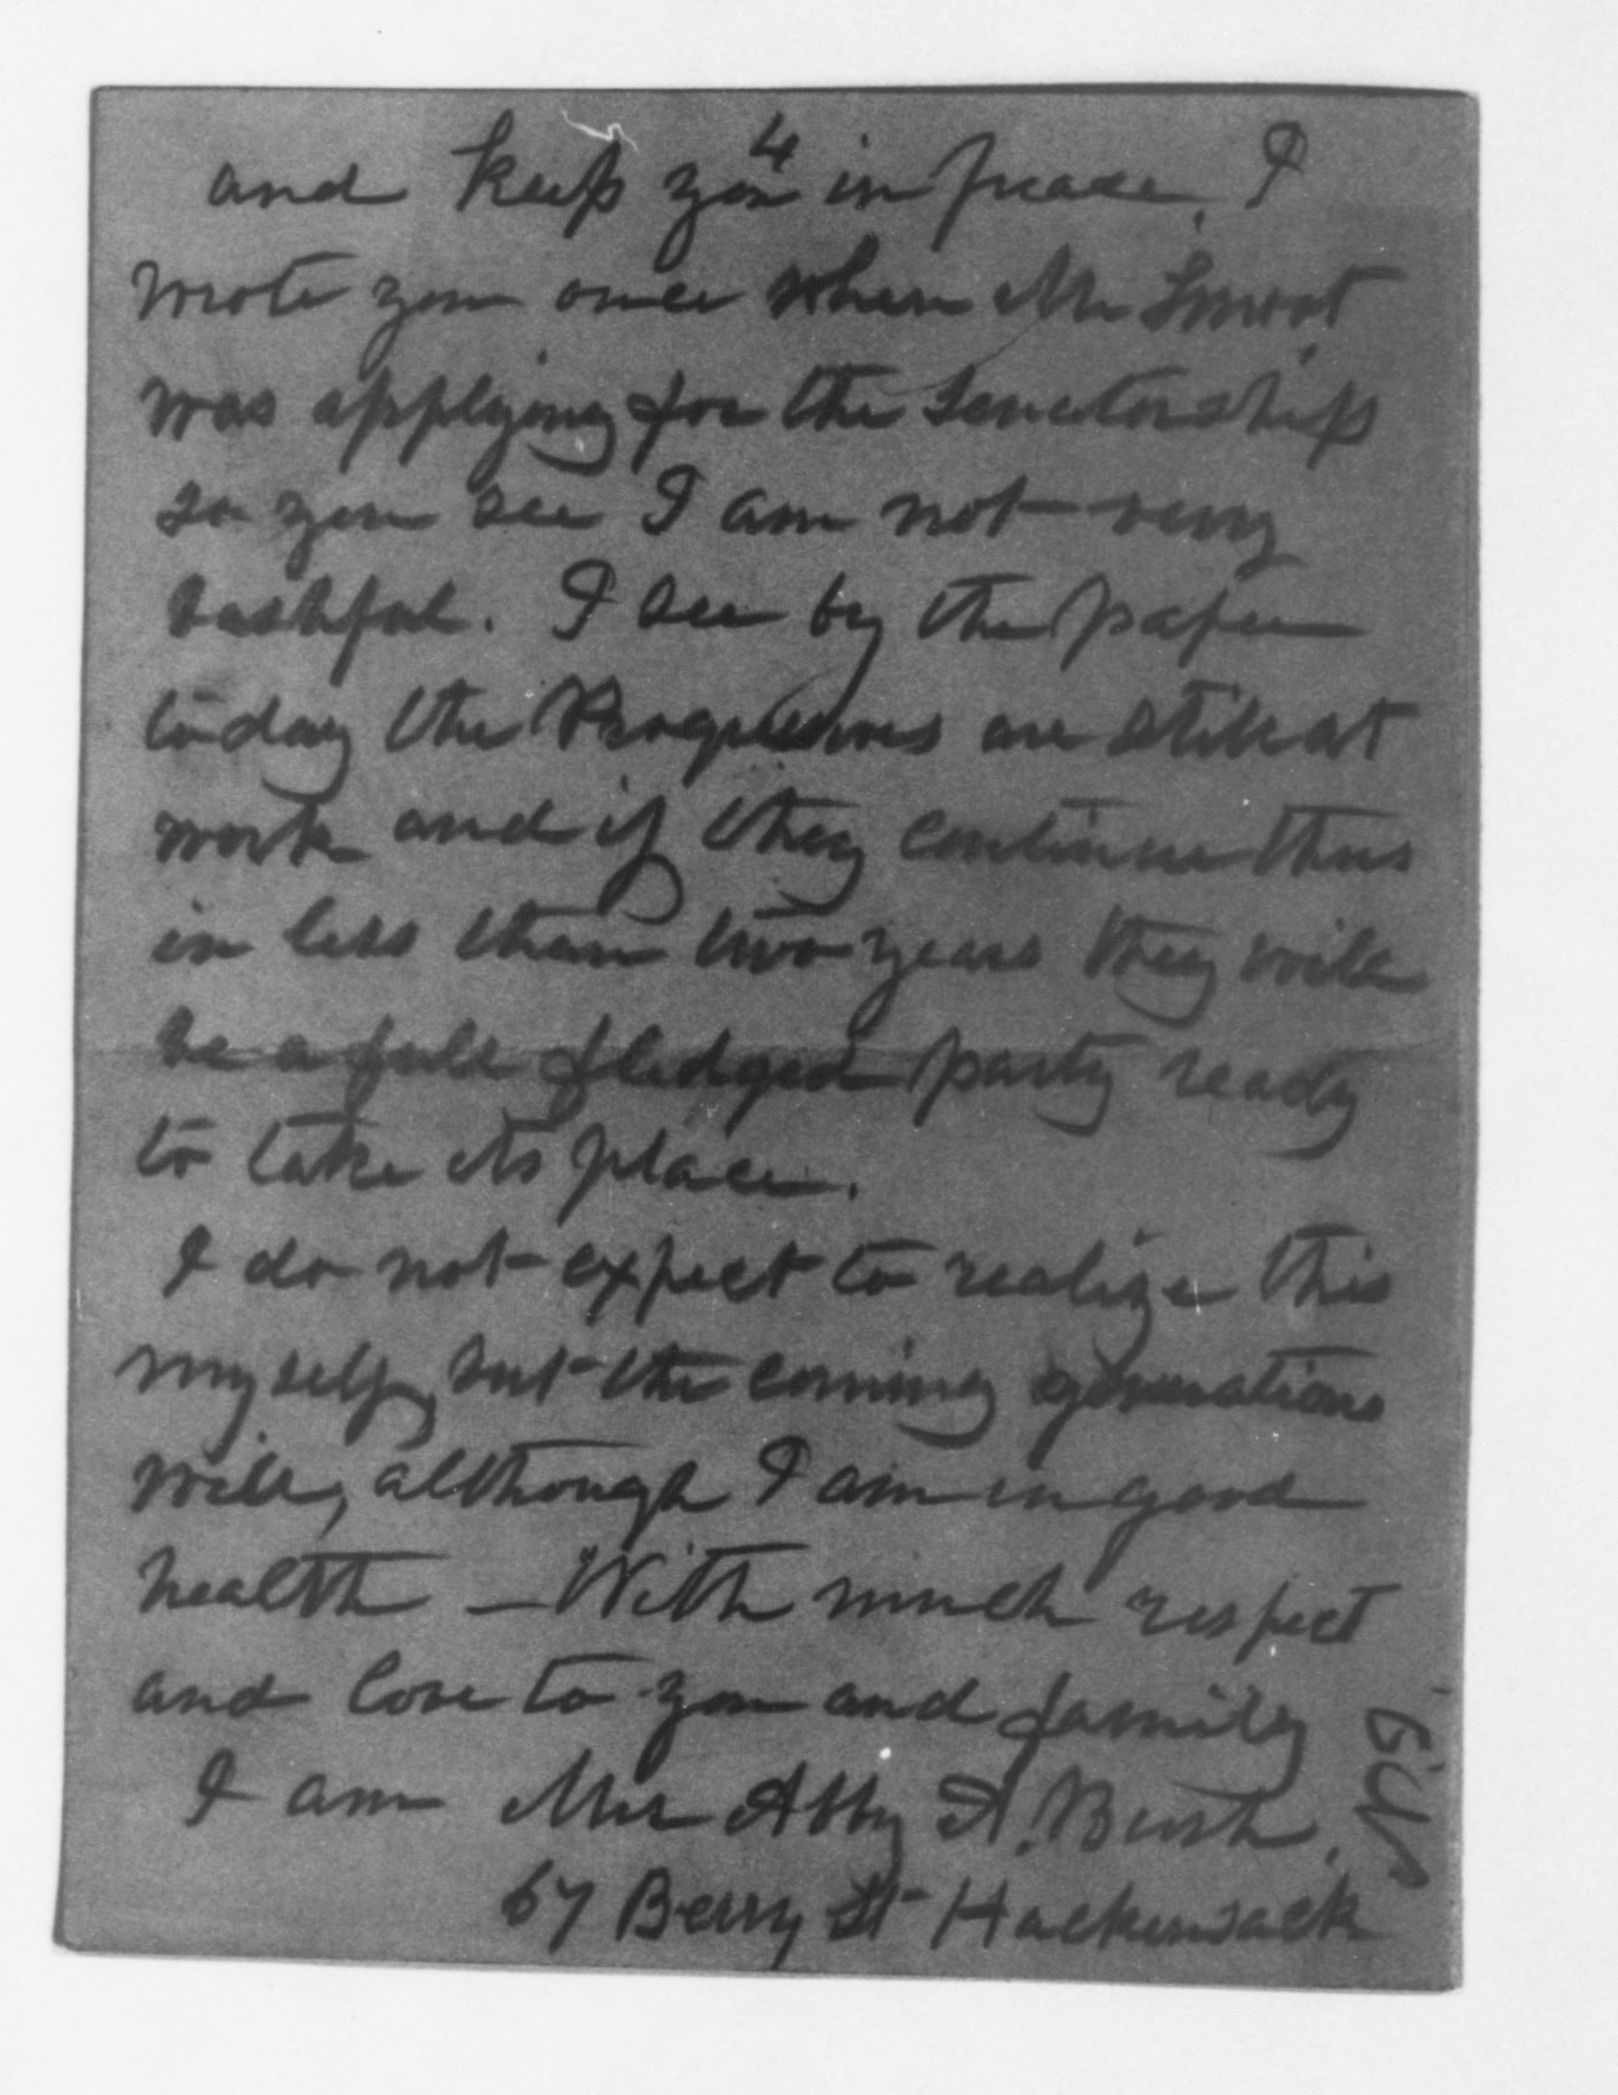 4
and keep you in peace. I
wrote you once when Mr Smoot
was applying for the Senatorship
so you see I am not very
bashful. I see by the paper
today the Progressives are still at
work and if they continue thus
in less than two years they will
be a full fledged party ready
to take its place.
I do not expect to realize this
myself, but the coming generations
will, although I am in good
health - With much respect
and love to you and family
I am Mrs Abby A. Bush.
67 Berry St Hackensack
N.J.